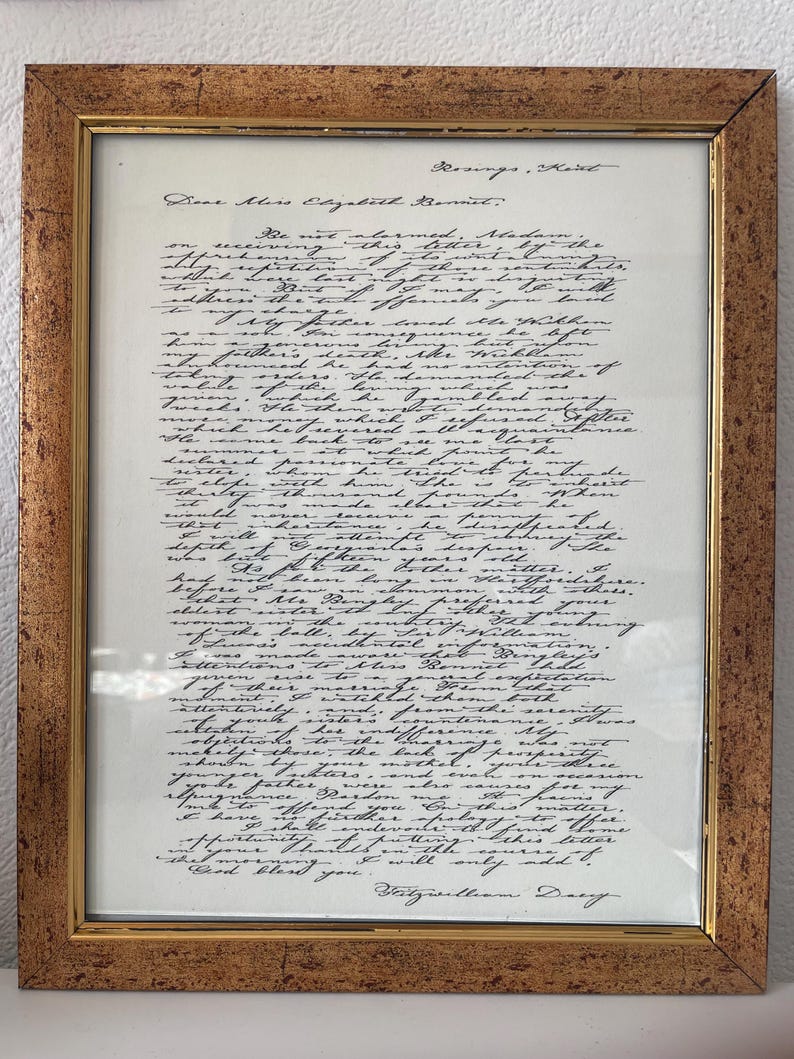 Rosings, Kent
Dear Miss Elizabeth Bennet,
Be not alarmed, Madam,
on receiving this letter, by the
apprehension of its containing
any repetition of those sentiments,
which were last night so disgusting
to you. But if I may, I will
address the two offences you laid
to my charge
My father loved Mr Wickham
as a son. In consequence he left
him a generous living but upon
my father's death, Mr Wickham
announced he had no intention of
taking orders. He demanded the
value of the living which was
given, which he gambled away
weeks. He then wrote demanding
more money which I refused. After
which he severed all acquaintance.
He came back to see me last
summer - at which point he
declared passionate love for my
sister, whom he tried to persuade
to elope with him. She is to inherit
thirty thousand pounds. When
it was made clear that he
would never receive a penny of
that inheritance, he disappeared.
I will not attempt to convey the
depth of Georgiana's despair. She
was but fifteen years old
As for the other matter, I
had not been long in Hertfordshire,
before I saw in common with others,
that Mr Bingley preferred your
eldest sister to any other young
woman in the country. The evening
of the ball, by Sir William
Lucas's accidental information,
I was made aware that Bingley's
attentions to Miss Bennet had
given rise to a general expectation
of their marriage. From that
moment I watched them both
attentively and, from the serenity
of your sister's countenance, I was
certain of her indifference. My
objections to the marriage was not
merely those, the lack of propriety
shown by your mother, your three
younger sisters, and even on occasion
your father were also causes for my
repugnance. Pardon me. It pains
me to offend you. On this matter,
I have no further apology to offer.
I shall endevour to find some
opportunity of putting this letter
in your hands in the course of
the morning. I will only add,
God bless you.
Fitzwilliam Darcy